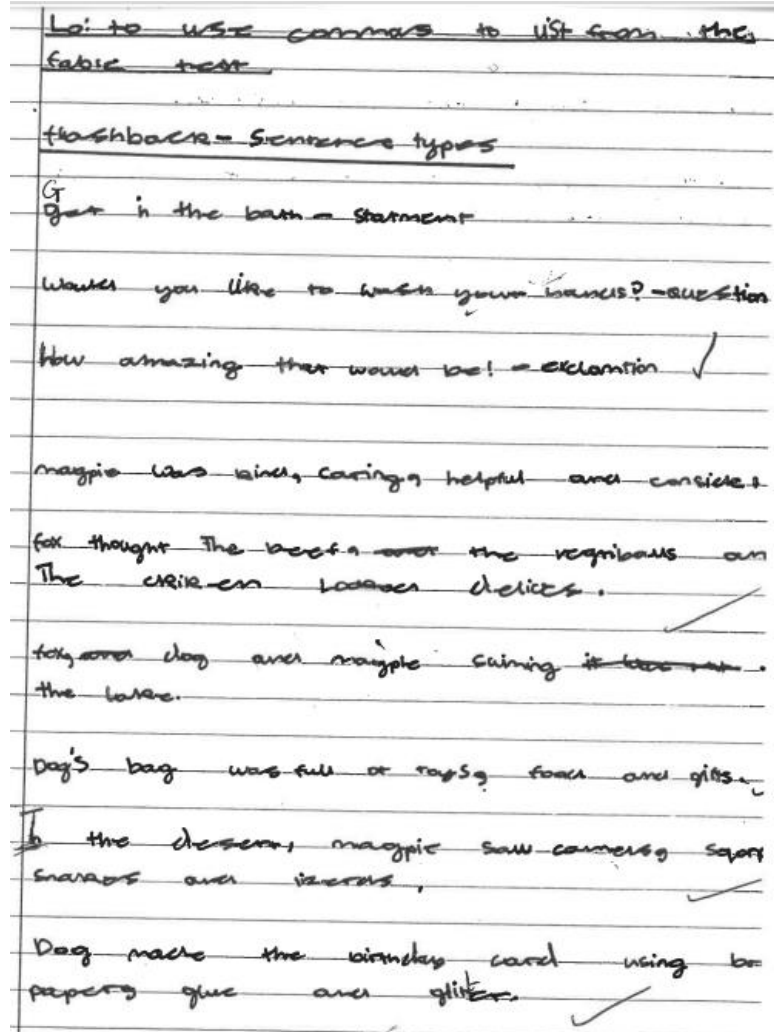 Lo: to use commas to list from the
fable text
flashback - Sentence types
Get in the bath - statment
would you like to wash your hands? - question
How amazing that would be! - exclamtion
magpie was kind, caring, helpful and conside
fox thought The beef, the an
The looked
fox, dog and magpie
the lake.
Dog's bag was full of toys, food and gifts.
In the desert, magpie saw camels,
and
Dog made the birthday card using
papers, glue and gliter.